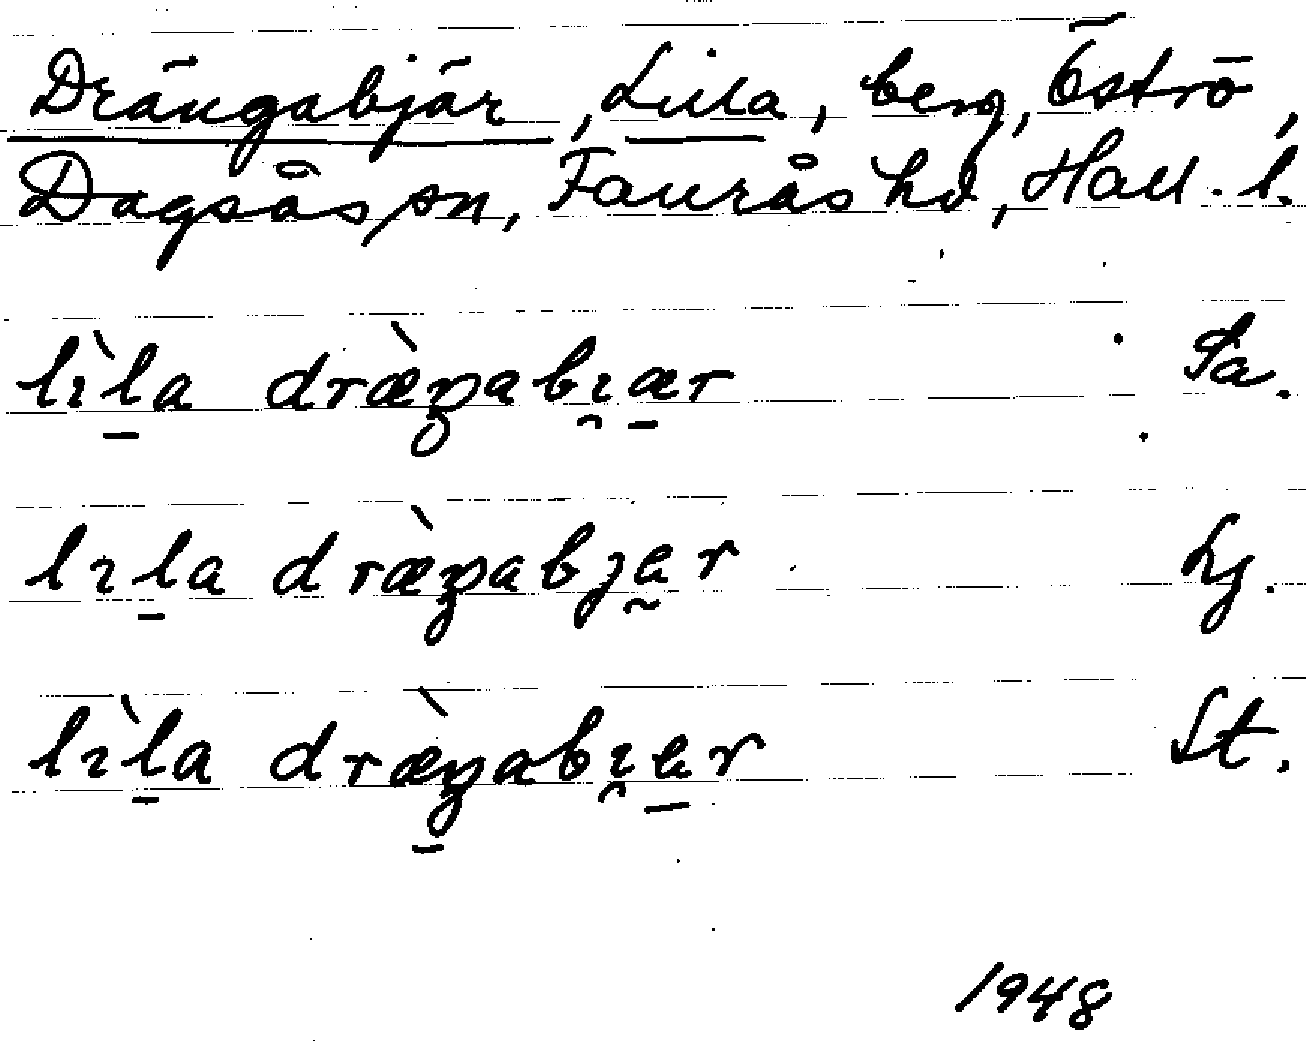 Drängabjär, Lilla, berg, Öströ,
Dagsås sn, Faurås hd, Hall. l.
lìla dræ̀ŋabıær Sa.
lıla dræ̀ŋabjær Lj.
lìla dræ̀ŋabıær St.
1948